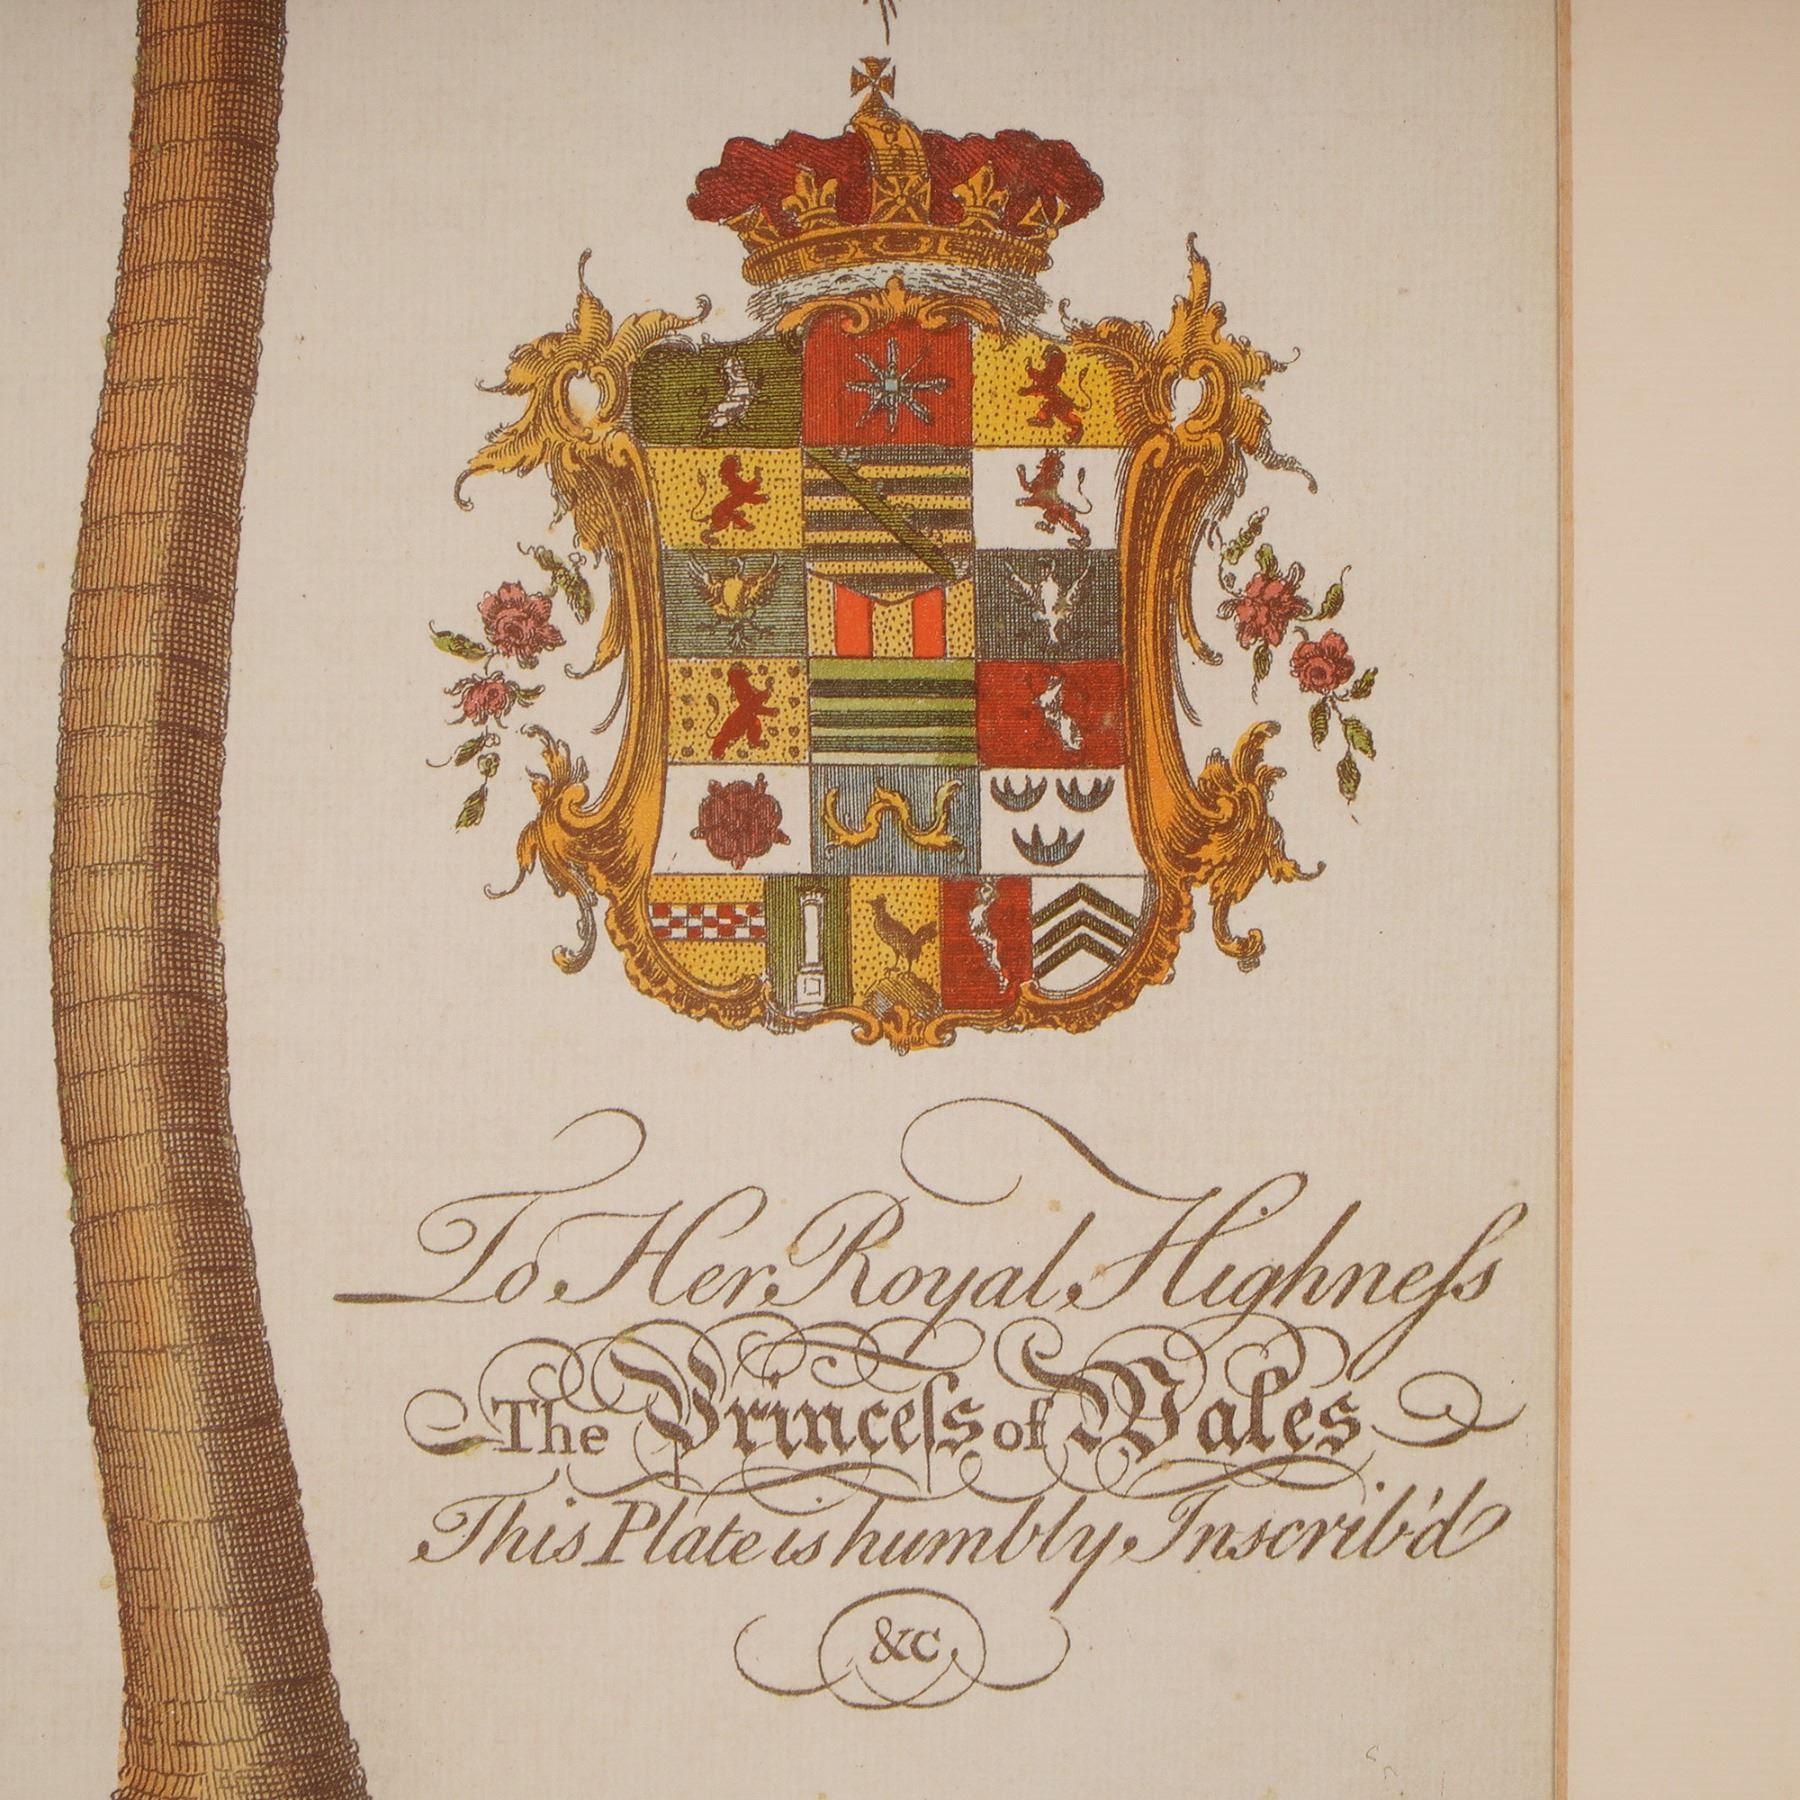 To Her Royal Highneſs
The Princeſs of Wales
This Plate is humbly Inscrib'd
&c.